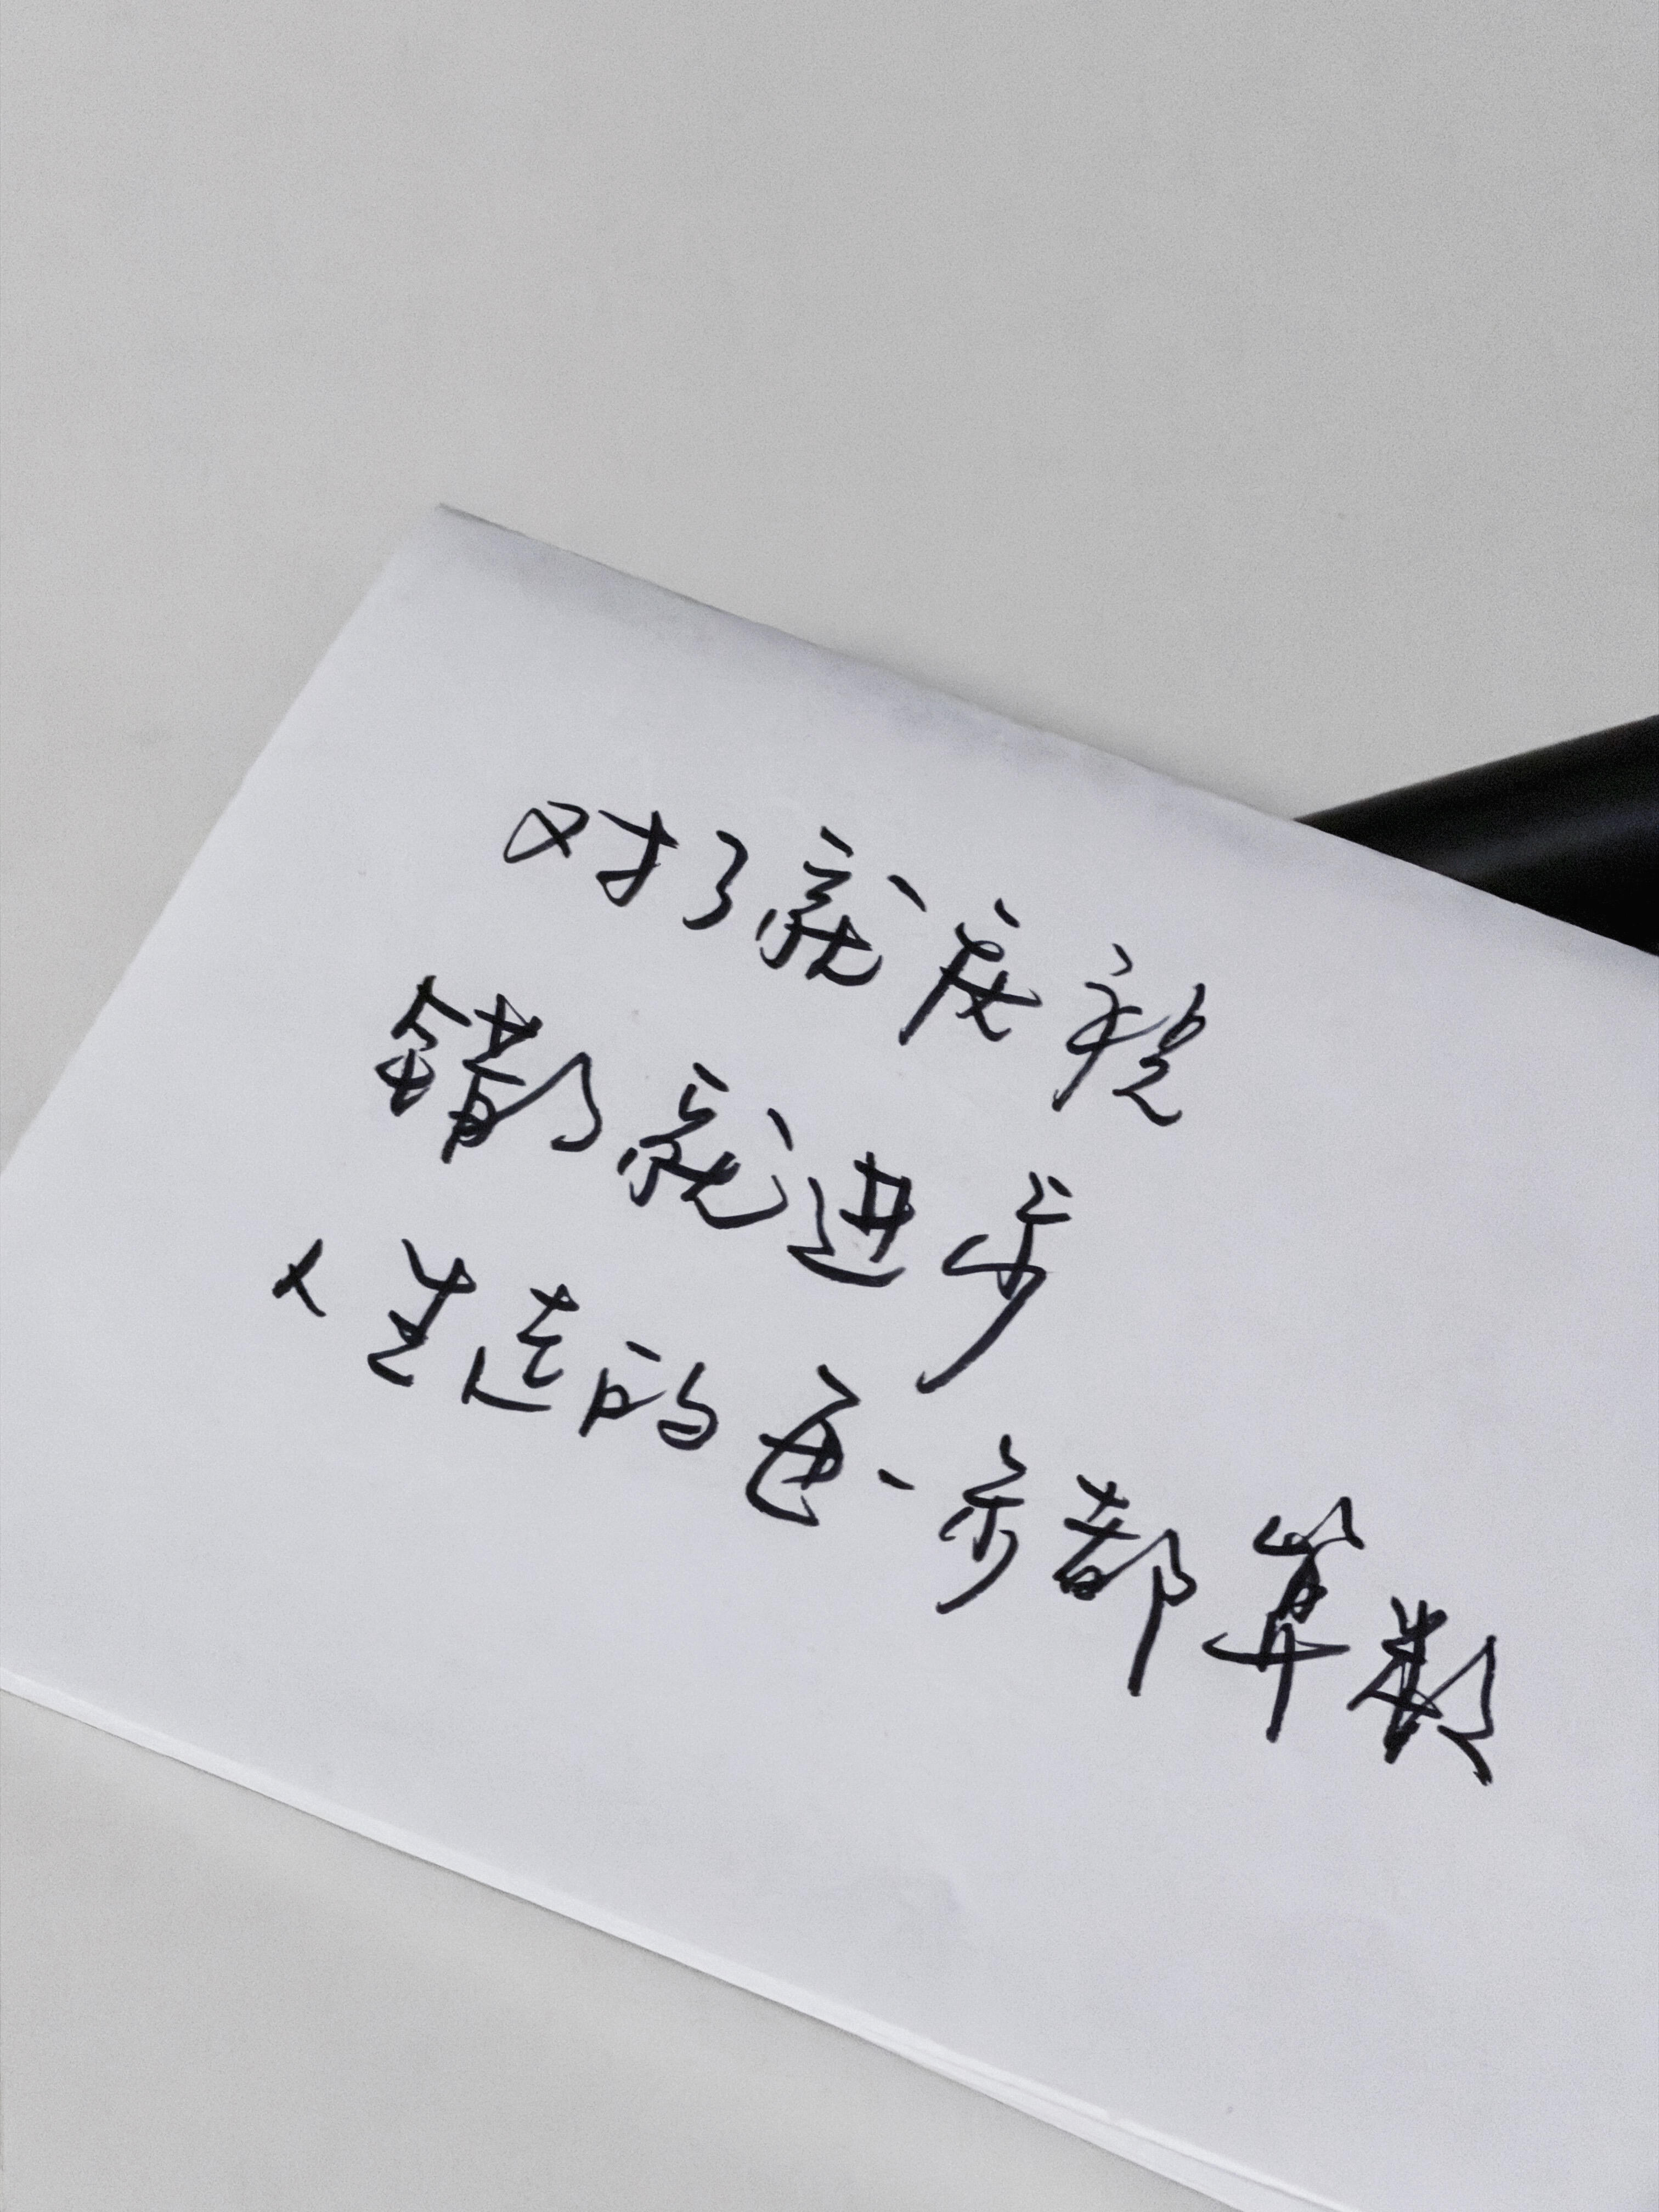 对了就庆祝
错了就进步
人生走的每一步都算数